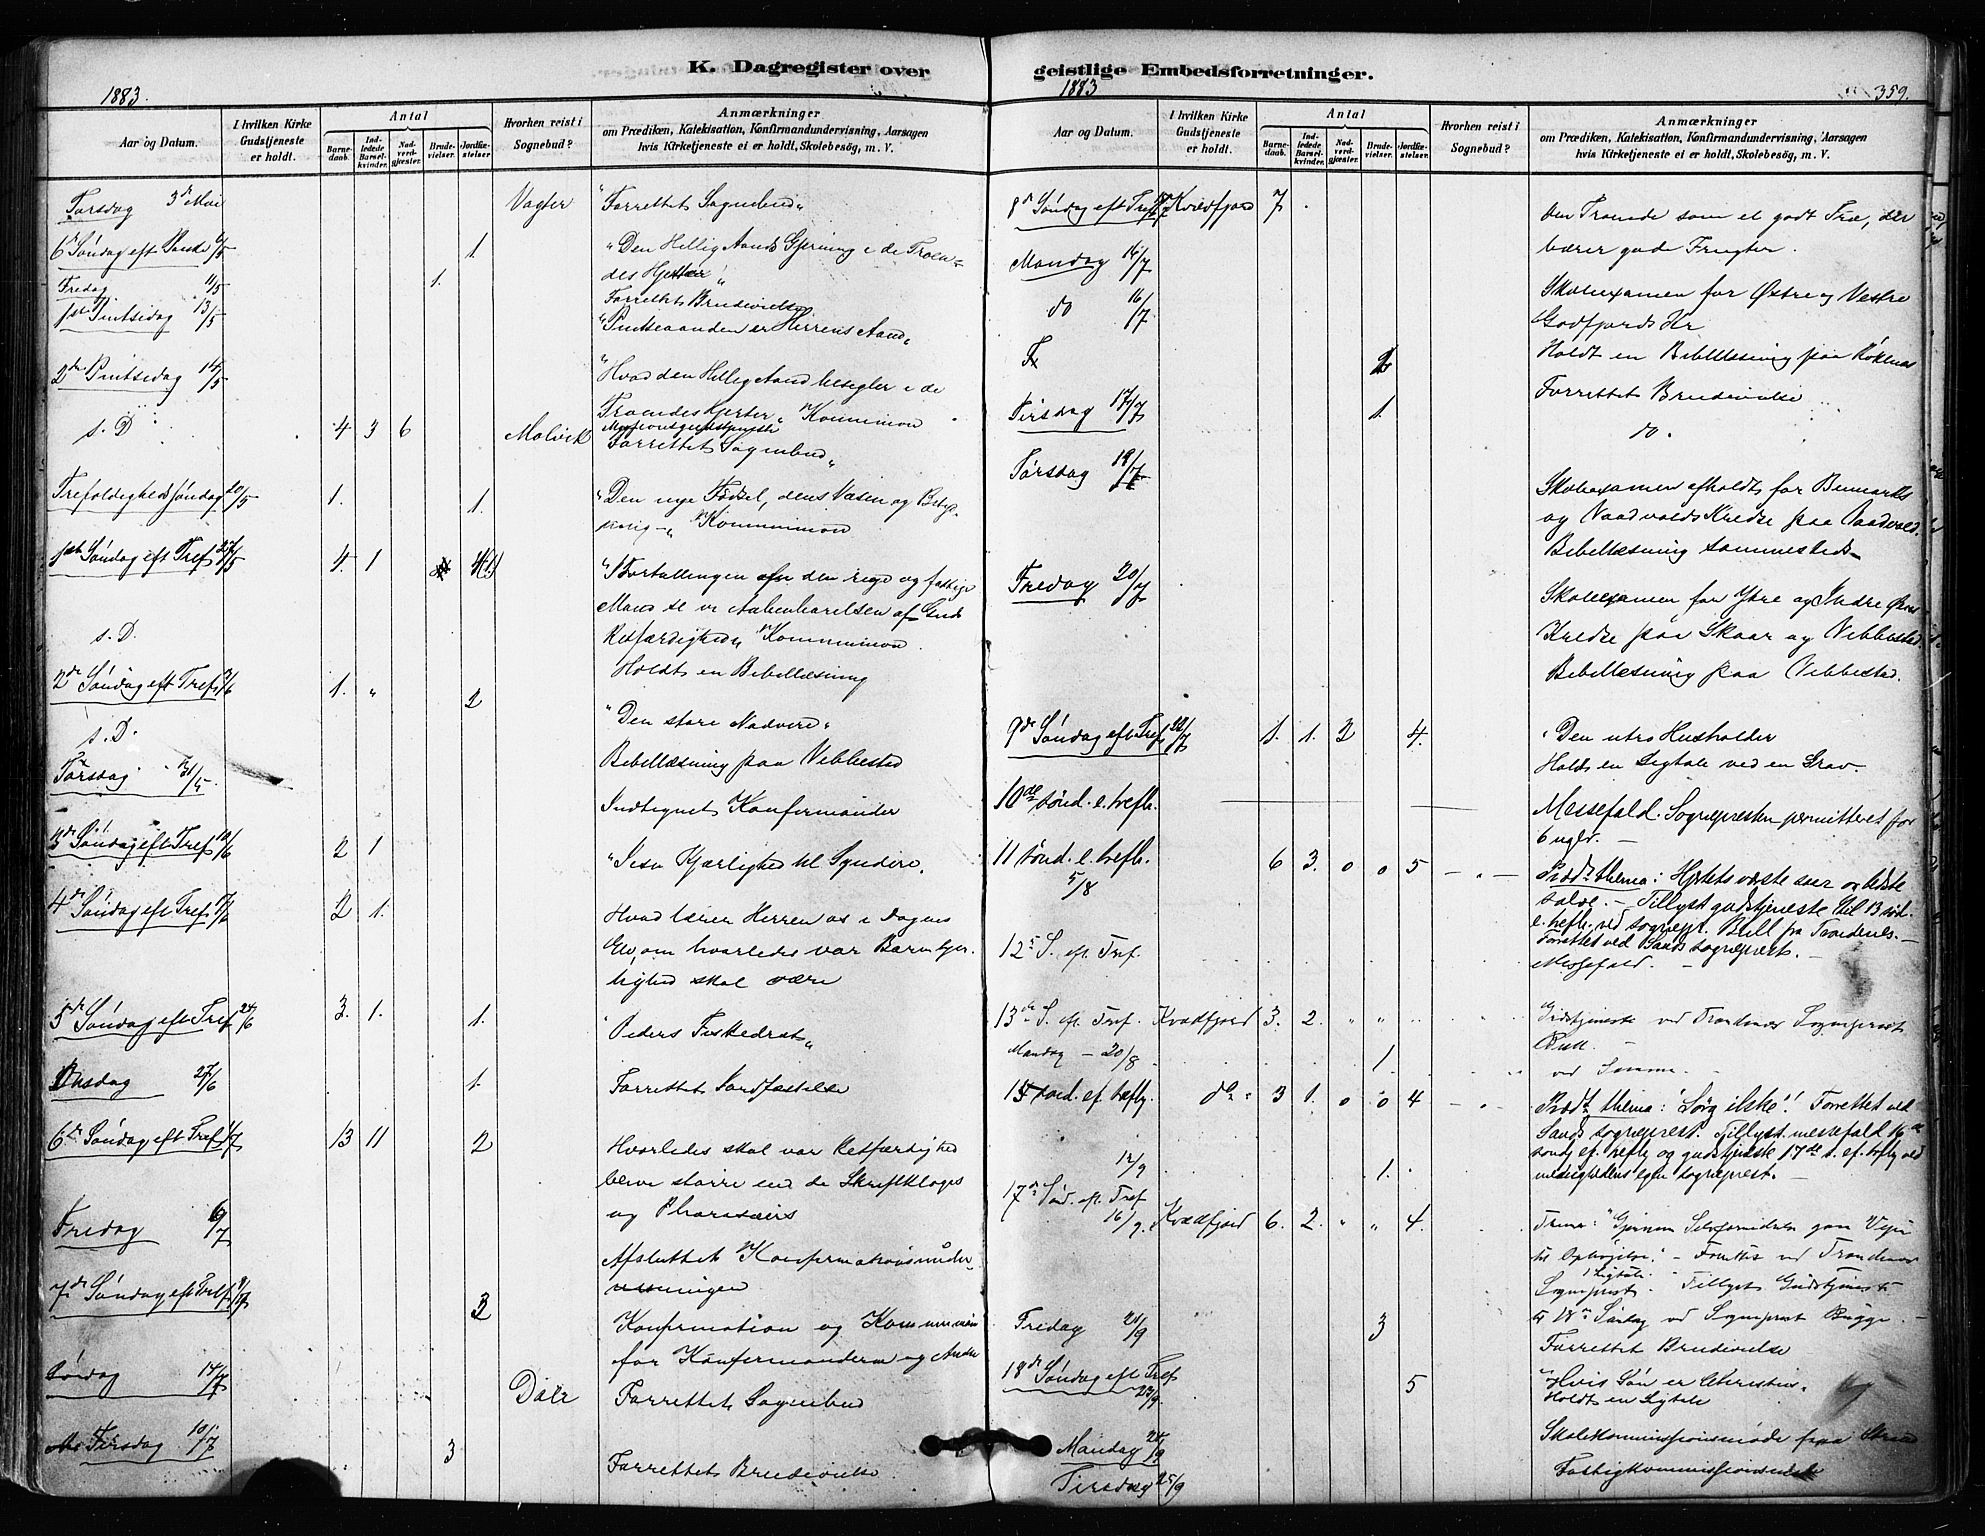 K. Dagregister over
geistlige Embedsforretninger.
1883.
1883
359.
Aar og Datum.
I hvilken Kirke Gudstjeneste er holdt.
Antal
Barnedaab.
Indledede Barselkvinder.
Nadverdgjæster.
Brudevielser.
Jordfæstelser.
Hvorhen reist i Sognebud?
Anmærkninger
om Prædiken, Katekisation, Konfirmandundervisning, Aarsagen
hvis Kirketjeneste ei er holdt, Skolebesøg, m. V.
Torsdag 3die Mai Vagter "Forrettet Sognebud"
6te Søndag eft Paaske 6/5 1 "Den Hellig Aands Gjerning i de Troen=
des Hjerter"
Fredag 11/5 1. Forrettet Brudevielse
1ste Pintsedag 13/5 "Pintseaanden er Herrens Aand"
2den Pintsedag 14/5 "Hvad den Hellig Aand besegler i de
Troendes Hjerter" Kommunion
s. D 4 3 6 Malvik Forrettet Sognebud
Trefoldighedssøndag 20/5 1. 1. "Den nye Fødsel, dens Væsen og
Kommunion
1ste Søndag eft Tref 27/5 4. 1 "I Fortællingen om den rige og fattige
Mand se vi Aabenbarelsen af Guds
Retfærdighed" Kommunion
s. D. Holdt en Bibellæsning
2den Søndag eft Tref 3/6 1. " 2 "Den store Nadvere"
s. D. Bibellæsning paa Vebbestad
Torsdag 31/5 Indtegnet Konfirmander
3die Søndag eft Tref 10/6 2 1 "Jesu Kjærlighed til Syndere"
4de Søndag eft Tref 17/6 2 1. Hvad lærer Herren os i Dagens
Ev, om hvorledes vor Barmhjer-
tighed skal være
5te Søndag eft Tref 24/6 3. 1. 1. "Peders Fiskedræt"
Onsdag 27/6 1. Forrettet Jordfæstelse
6te Søndag eft Tref 1/7 13 11 2 Hvorledes skal vor Retfærdighed
blive større end de Skriftkloges
og Pharisæers
Fredag 6/7 Afsluttet Konfirmationsunder-
visningen
7de Søndag eft Tref 8/7 3 Konfirmation og Kommunion
for Konfirmanderne og Andre
Lørdag 14/7 Dale Forrettet Sognebud
Tirsdag 10/7 3 Forrettet Brudevielse
Aar og Datum.
I hvilken Kirke Gudstjeneste er holdt.
Antal
Barnedaab.
Indledede Barselkvinder.
Nadverdgjæster.
Brudevielser.
Jordfæstelser.
Hvorhen reist i Sognebud?
Anmærkninger
om Prædiken, Katekisation, Konfirmandundervisning, Aarsagen
hvis Kirketjeneste ei er holdt, Skolebesøg, m. V.
8de Søndag eft Tref Kvædfjord 7 Den Troende som et godt Træ, der
bærer gode Frugter.
Mandag 16/7 Skoleexamen for Østre og Vestre
Godfjords Kr
do 16/7 Holdt en Bibellæsning paa Røkenes
Forrettet Brudevielse
Tirsdag 17/7 1. do.
Torsdag 19/7 Skoleexamen afholdt for
og Vaadvolds Kredse paa Vaadvold.
Bibellæsning sammesteds
Fredag 20/7 Skoleexamen for Ytre og Indre
Kredse paa Skaar og Vebbestad.
Bibellæsning paa Vebbestad.
9de Søndag eft Tref 22/7 1. 1. 2 4. "Den utro Husholder
Holdt en Ligtale ved en Grav.
10de sønd. e. trefh. Messefald. Sognepresten permitteret for
6 uger.
11 sønd. e. trefh. 5/8 6 3. 0 0 5 Præd. thema: Hjertets værste saar og bedste
salve. — Tillyst gudstjeneste til 13 sønd.
e. trefh. ved sognepr. Bull fra Trondenes.
Forrettet ved Sands sogneprest.
12te S. eft. Tref. Messefald.
13de S. eft. Tref. Kvædfjord 3. 2. " " Gudstjeneste ved Trondenæs Sogneprest
Bull.
Mandag — 20/8 1. ved Samme.
15 sønd. ef. trefh. do 3 1. 0 0 4 Præd. thema: "Sørg ikke"! Forrettet ved
Sands sogneprest. Tillyst messefald 16de
sønd ef. trefh og gudstjeneste 17de s. ef. trefh ved
menighedens egen sogneprest.
12/9 1.
17de Sønd. eft. Tref 16/9. Kvædfjord 6. 2. " " 4. Tema: "Gjennem Selvfornedrelse gaar Veien
til Ophøielse." — Forrettet ved Trondenæs
Sogneprest. 1 Ligtale. Tillyst Gudstjeneste
18de Søndag ved Sogneprest Bugge.
Fridag 21/9 3 Forrettet Brudevielse
18de Søndag eft Tref 23/9 5 "Hvis Søn er Christus"
Holdt en Ligtale
Mandag 24/9 Skolekommissionsmøde paa
Tirsdag 25/9 Fattigkommissionsmøde